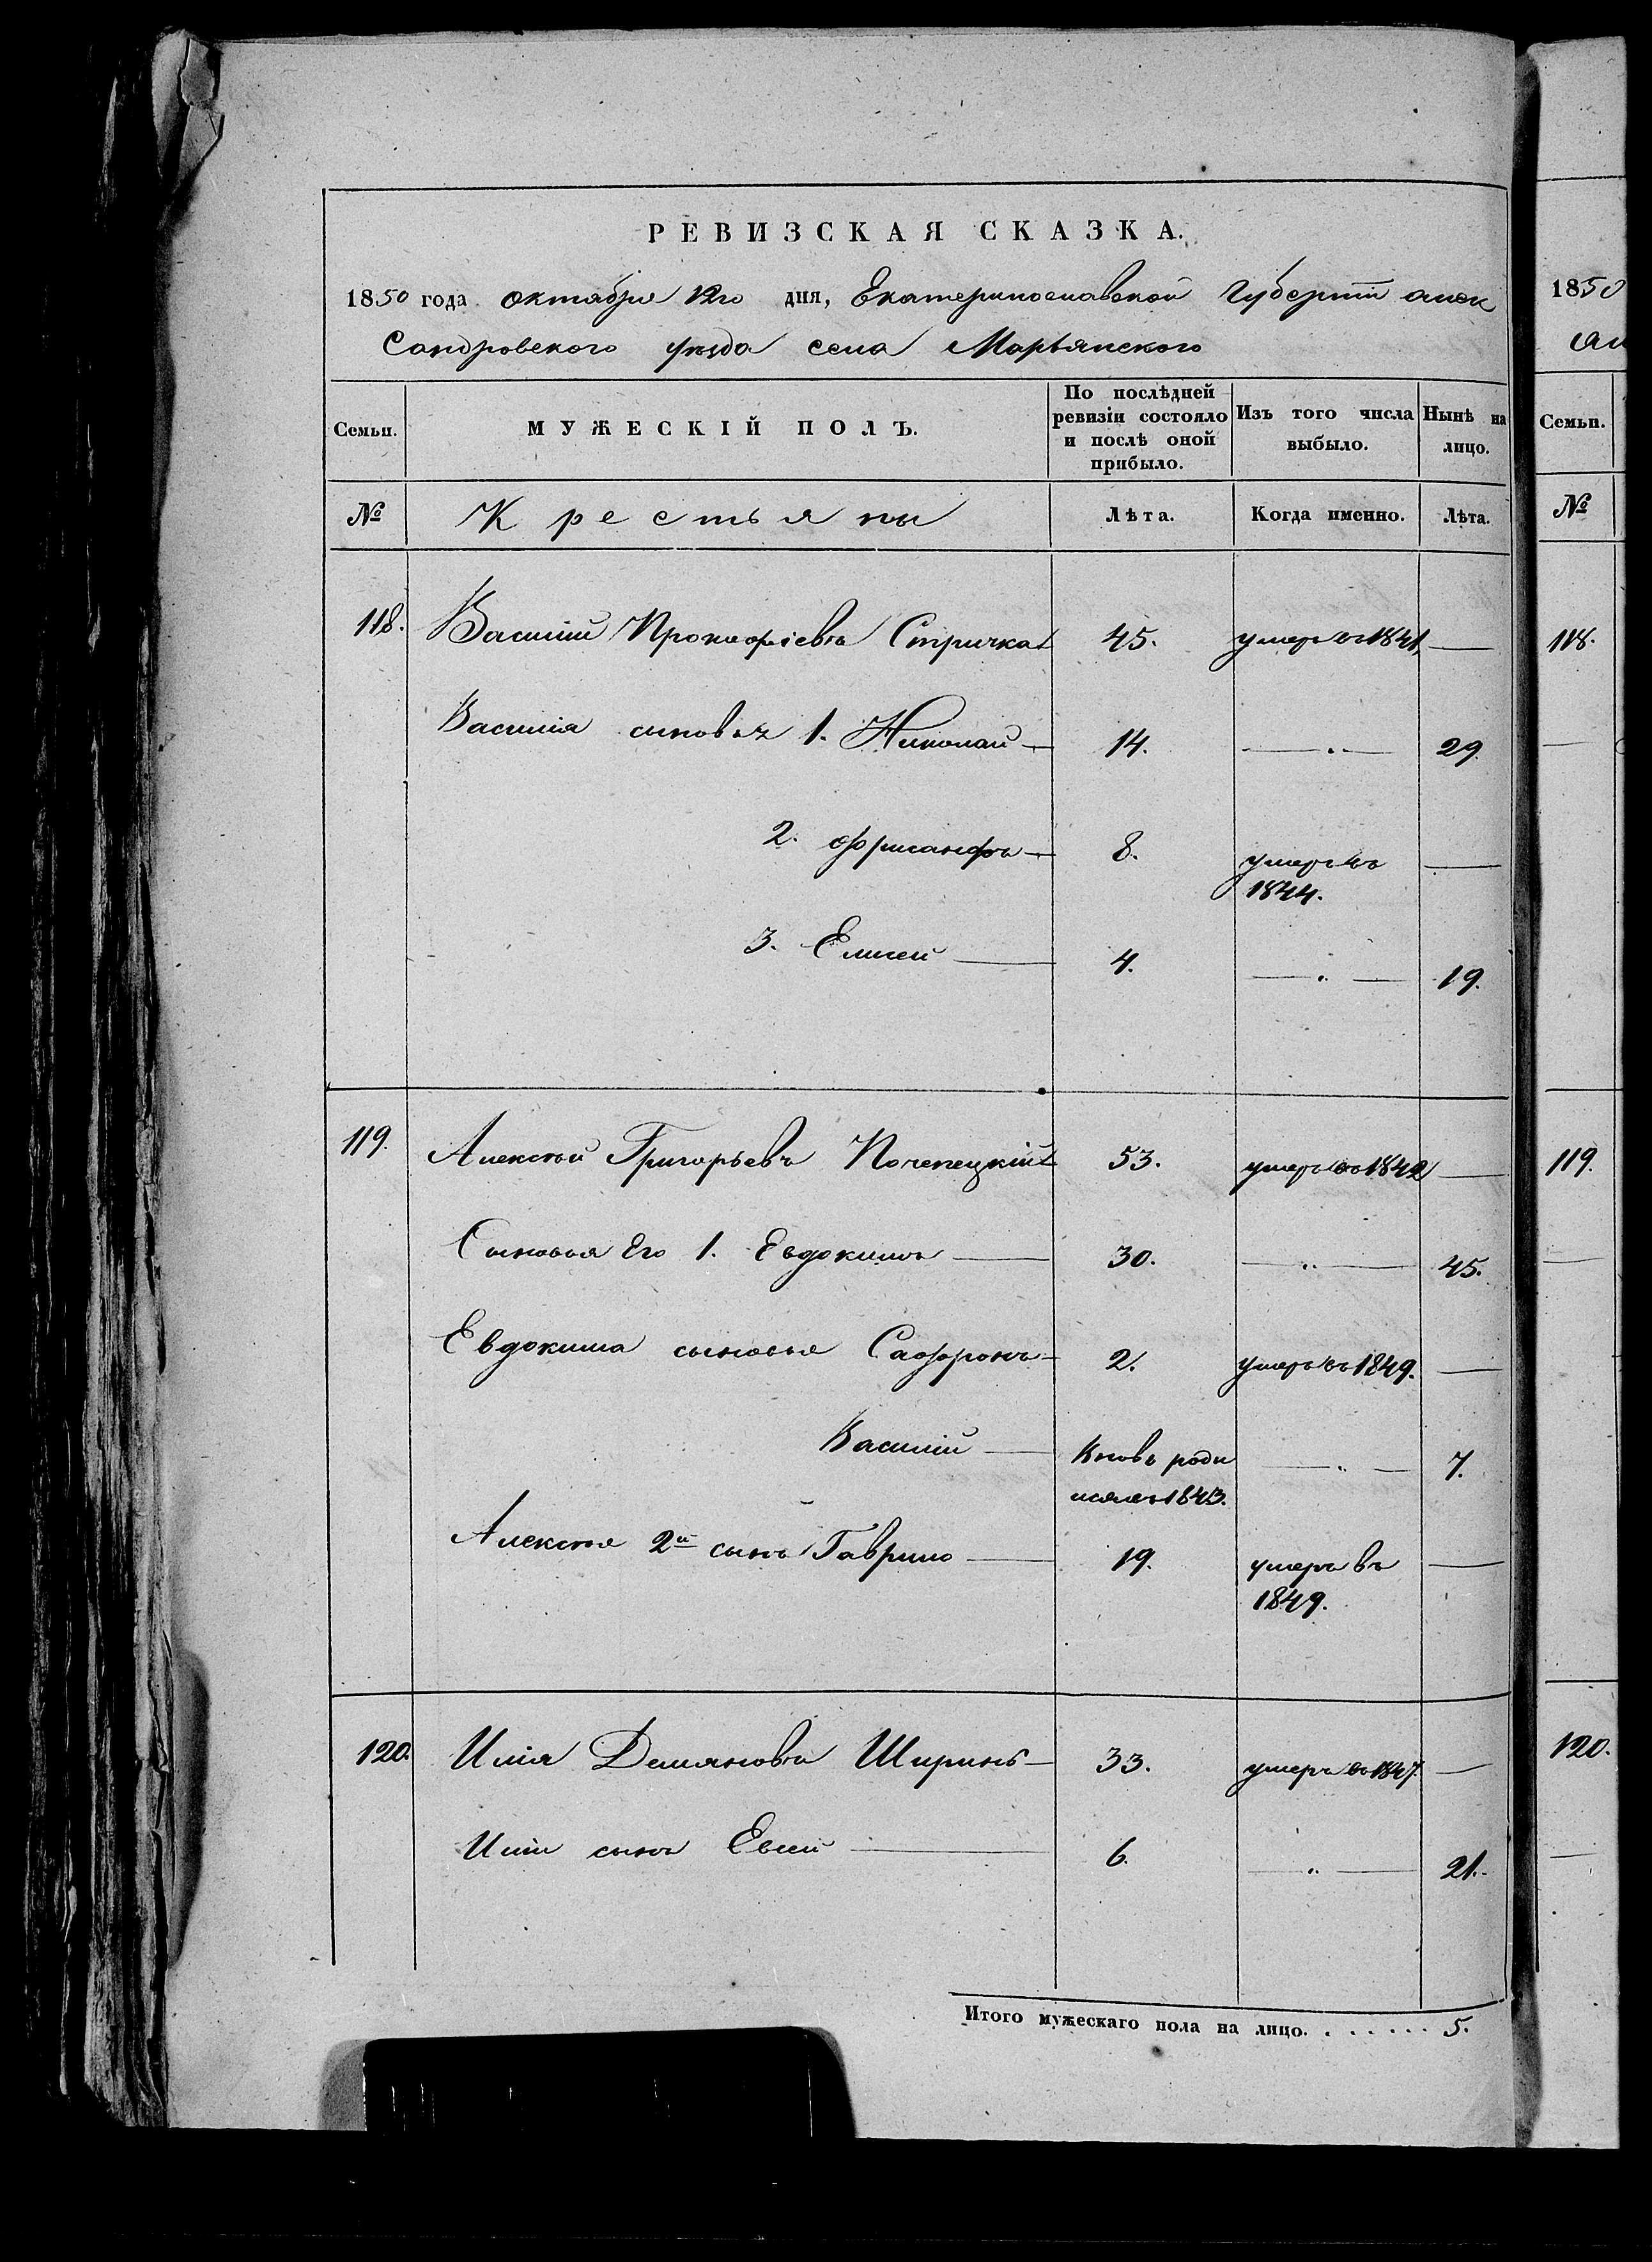 РЕВИЗСКАЯ СКАЗКА.
1850 года октября 12го дня, Екатеринославской Губернiи алек
сандровского уѣзда села Марьянского
Семьи. МУЖЕСКІЙ ПОЛЪ. По послѣдней ревизіи состояло и послѣ оной прибыло. Изъ того числа выбыло. Нынѣ на лицо.
№ Крестьяны Лѣта. Когда именно. Лѣта.
118. Василій Прокофіевъ Стричка 45. умеръ въ 1841. —
Василія сыновья 1. Николай — 14. — 29.
2. — 8. умеръ въ —
1844.
3. Елисей — 4. — 19.
119. Алексѣй Григорьевъ Почепецкій 53. умеръ въ 1842 —
Сыновья Его 1. Евдокимъ — 30. — 45.
Евдокима сыновья Сафронъ — 2. умеръ въ 1849. —
Василій — Вновь роди — 7.
лся въ 1843.
Алексѣя 2й сынъ Гаврило — 19. умеръ въ —
1849.
120. Илія Демяновъ Ширинъ — 33. умеръ въ 1847. —
Иліи сынъ Евсей — 6. — 21.
Итого мужескаго пола на лицо. . . . . . . 5.
1850
Семьи.
№
118.
119.
120.